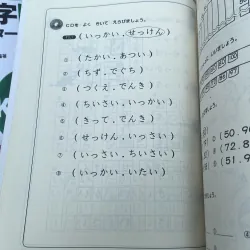 字
ター
CDを よく きいて えらびましょう。
(いっかい , せっけん)
① (たかい , あつい)
② (ちず , でぐち)
③ (つくえ , でんき)
④ (ちいさい , いっかい)
⑤ (きって , でんき)
⑥ (せっけん , いっさい)
⑦ (いっさい , ちいさい)
⑧ (いっかい , いたい)
しょう。
D (50. 90
⑧ (72. 8
⑪ (51. 9